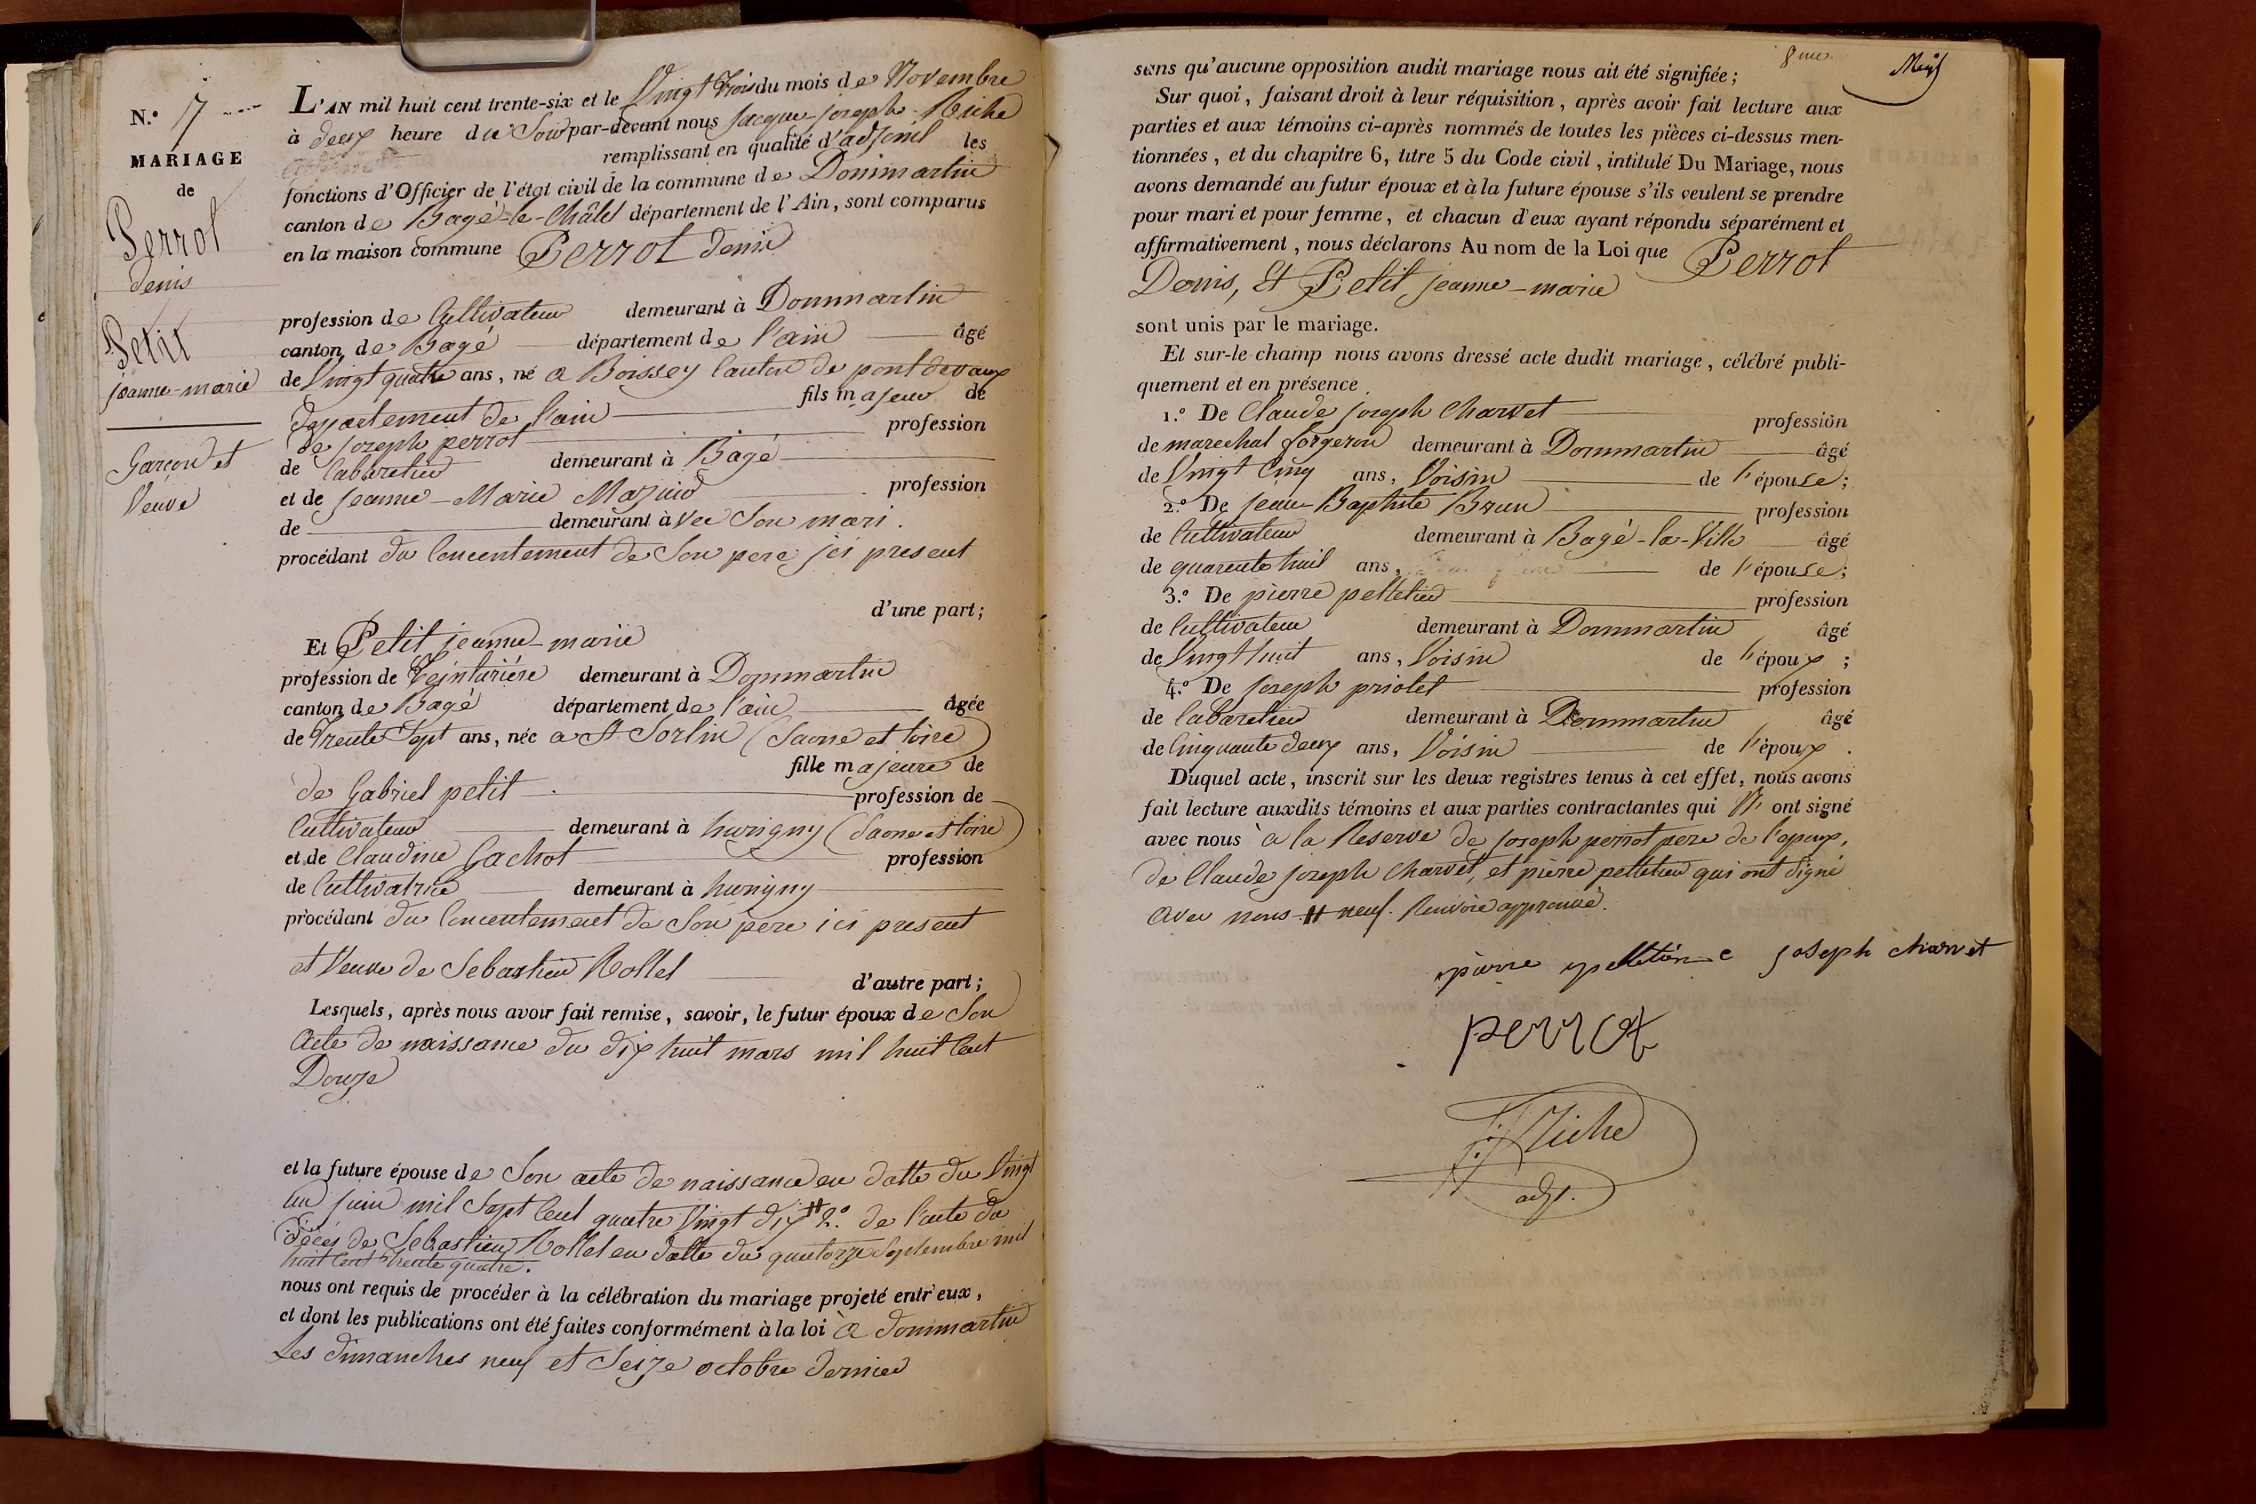 N.° 7
MARIAGE
de
Perrot
denis
Petit
jeanne-marie
Garçon et
Veuve
L'AN mil huit cent trente-six et le Vingt Trois du mois de Novembre
à deux heure du Soir par-devant nous Jacque-joseph Riche
remplissant en qualité d'adjoint les
fonctions d'Officier de l'état civil de la commune de Dommartin
canton de Bagé-le-Châtel département de l'Ain, sont comparus
en la maison commune Perrot denis
profession de Cultivateur demeurant à Dommartin
canton de Bagé département de l'ain âgé
de Vingt quatre ans, né a Boissey Canton de pont devaux
fils majeur de
departement de l'ain
de joseph perrot profession
de Cabaretier demeurant à Bagé
et de jeanne-Marie profession
de demeurant avec Son mari.
procédant du Concentement de Son pere ici present
d'une part;
Et Petit jeanne-marie
profession de Teinturiére demeurant à Dommartin
canton de Bagé département de l'ain âgée
de Trente Sept ans, née a St Sorlin (Saone et loire)
fille majeure de
de Gabriel petit profession de
Cultivateur demeurant à hurigny (Saone et loire)
et de Claudine Gachot profession
de Cultivatrice demeurant à hurigny
procédant du Concentement de Son père ici present
et Veuve de Sebastien Rollet d'autre part;
Lesquels, après nous avoir fait remise, savoir, le futur époux de Son
Acte de naissance du dix huit mars mil huit Cent
Douze
et la future épouse de Son acte de naissance en datte du Vingt
un juin mil Sept Cent quatre Vingt dix # 2.° de l'acte du
décés de Sebastien Rollet en datte du quatorze Septembre mil
huit Cent trente quatre.
nous ont requis de procéder à la célébration du mariage projeté entr'eux,
et dont les publications ont été faites conformément à la loi à dommartin
Les dimanches neuf et Seize octobre dernier
8me
sans qu'aucune opposition audit mariage nous ait été signifiée;
Sur quoi, faisant droit à leur réquisition, après avoir fait lecture aux
parties et aux témoins ci-après nommés de toutes les pièces ci-dessus men-
tionnées, et du chapitre 6, titre 5 du Code civil, intitulé Du Mariage, nous
avons demandé au futur époux et à la future épouse s'ils veulent se prendre
pour mari et pour femme, et chacun d'eux ayant répondu séparément et
affirmativement, nous déclarons Au nom de la Loi que Perrot
Denis, Et Petit jeanne-marie
sont unis par le mariage.
Et sur-le-champ nous avons dressé acte dudit mariage, célébré publi-
quement et en présence
1.° De Claude joseph Charvet profession
de marechal forgeron demeurant à Dommartin âgé
de Vingt Cinq ans, Voisin de l'épouse;
2.° De jean-Baptiste Brun profession
de Cultivateur demeurant à Bagé-la-Ville âgé
de quarente huit ans, de l'épouse;
3.° De pierre pelletier profession
de Cultivateur demeurant à Dommartin âgé
de Vingt huit ans, Voisin de l'époux;
4.° De joseph priolet profession
de Cabaretier demeurant à Dommartin âgé
de Cinquante deux ans, Voisin de l'époux.
Duquel acte, inscrit sur les deux registres tenus à cet effet, nous avons
fait lecture auxdits témoins et aux parties contractantes qui N' ont signé
avec nous à la Reserve de joseph perrot pere de l'epoux,
de Claude joseph Charvet, et pierre pelletier qui ont Signé
avec nous # neuf. Renvoie approuvé.
pierre pelletier c joseph charvet
perrot
J. J. Riche
adjt.